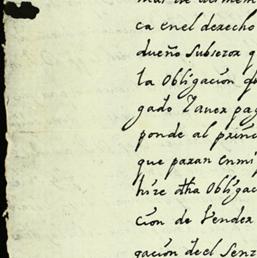 mas de
ca enel derecho
dueño Subcesor q
la Obligación q
gado Tauer pag
ponde al princ
que paran en mi p
hize dha Obligac
ción de Vender
gación del Senz